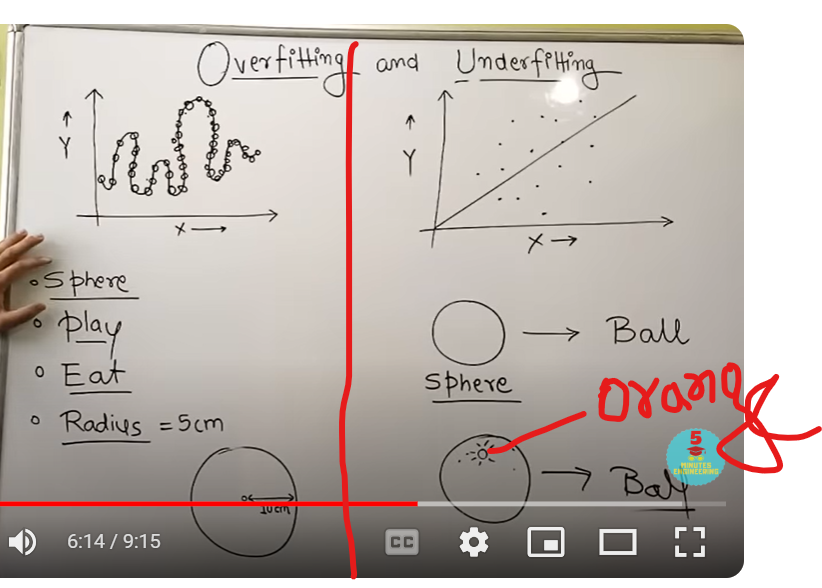 Overfitting and Underfitting
Y
X
Y
X
Sphere
Play
Eat
Radius = 5cm
10cm
Ball
Sphere
Orange
5
MINUTES
ENGINEERING
Ball
CC
6:14 / 9:15